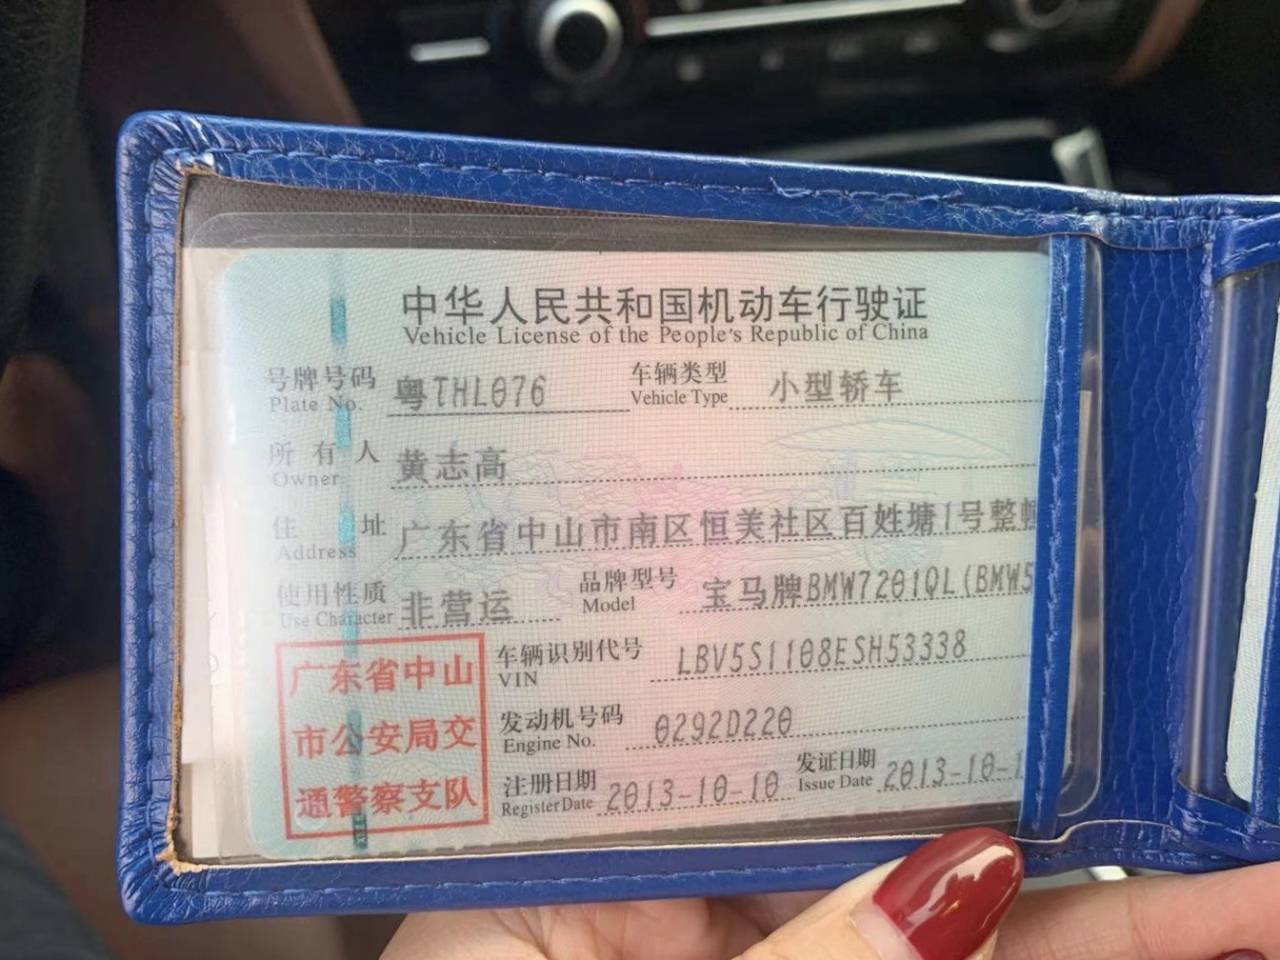 中华人民共和国机动车行驶证
Vehicle License of the People's Republic of China
号牌号码 粤THL076 车辆类型 小型轿车
Plate No. Vehicle Type
所有人 黄志高
Owner
住址 广东省中山市南区恒美社区百姓塘1号整
Address
使用性质 非营运 品牌型号 宝马牌BMW7201QL(BMW5
Use Character Model
车辆识别代号 LBV5S1108ESH53338
VIN
发动机号码 0292D220
Engine No.
注册日期 2013-10-10 发证日期 2013-10-1
Register Date Issue Date
广东省中山
市公安局交
通警察支队